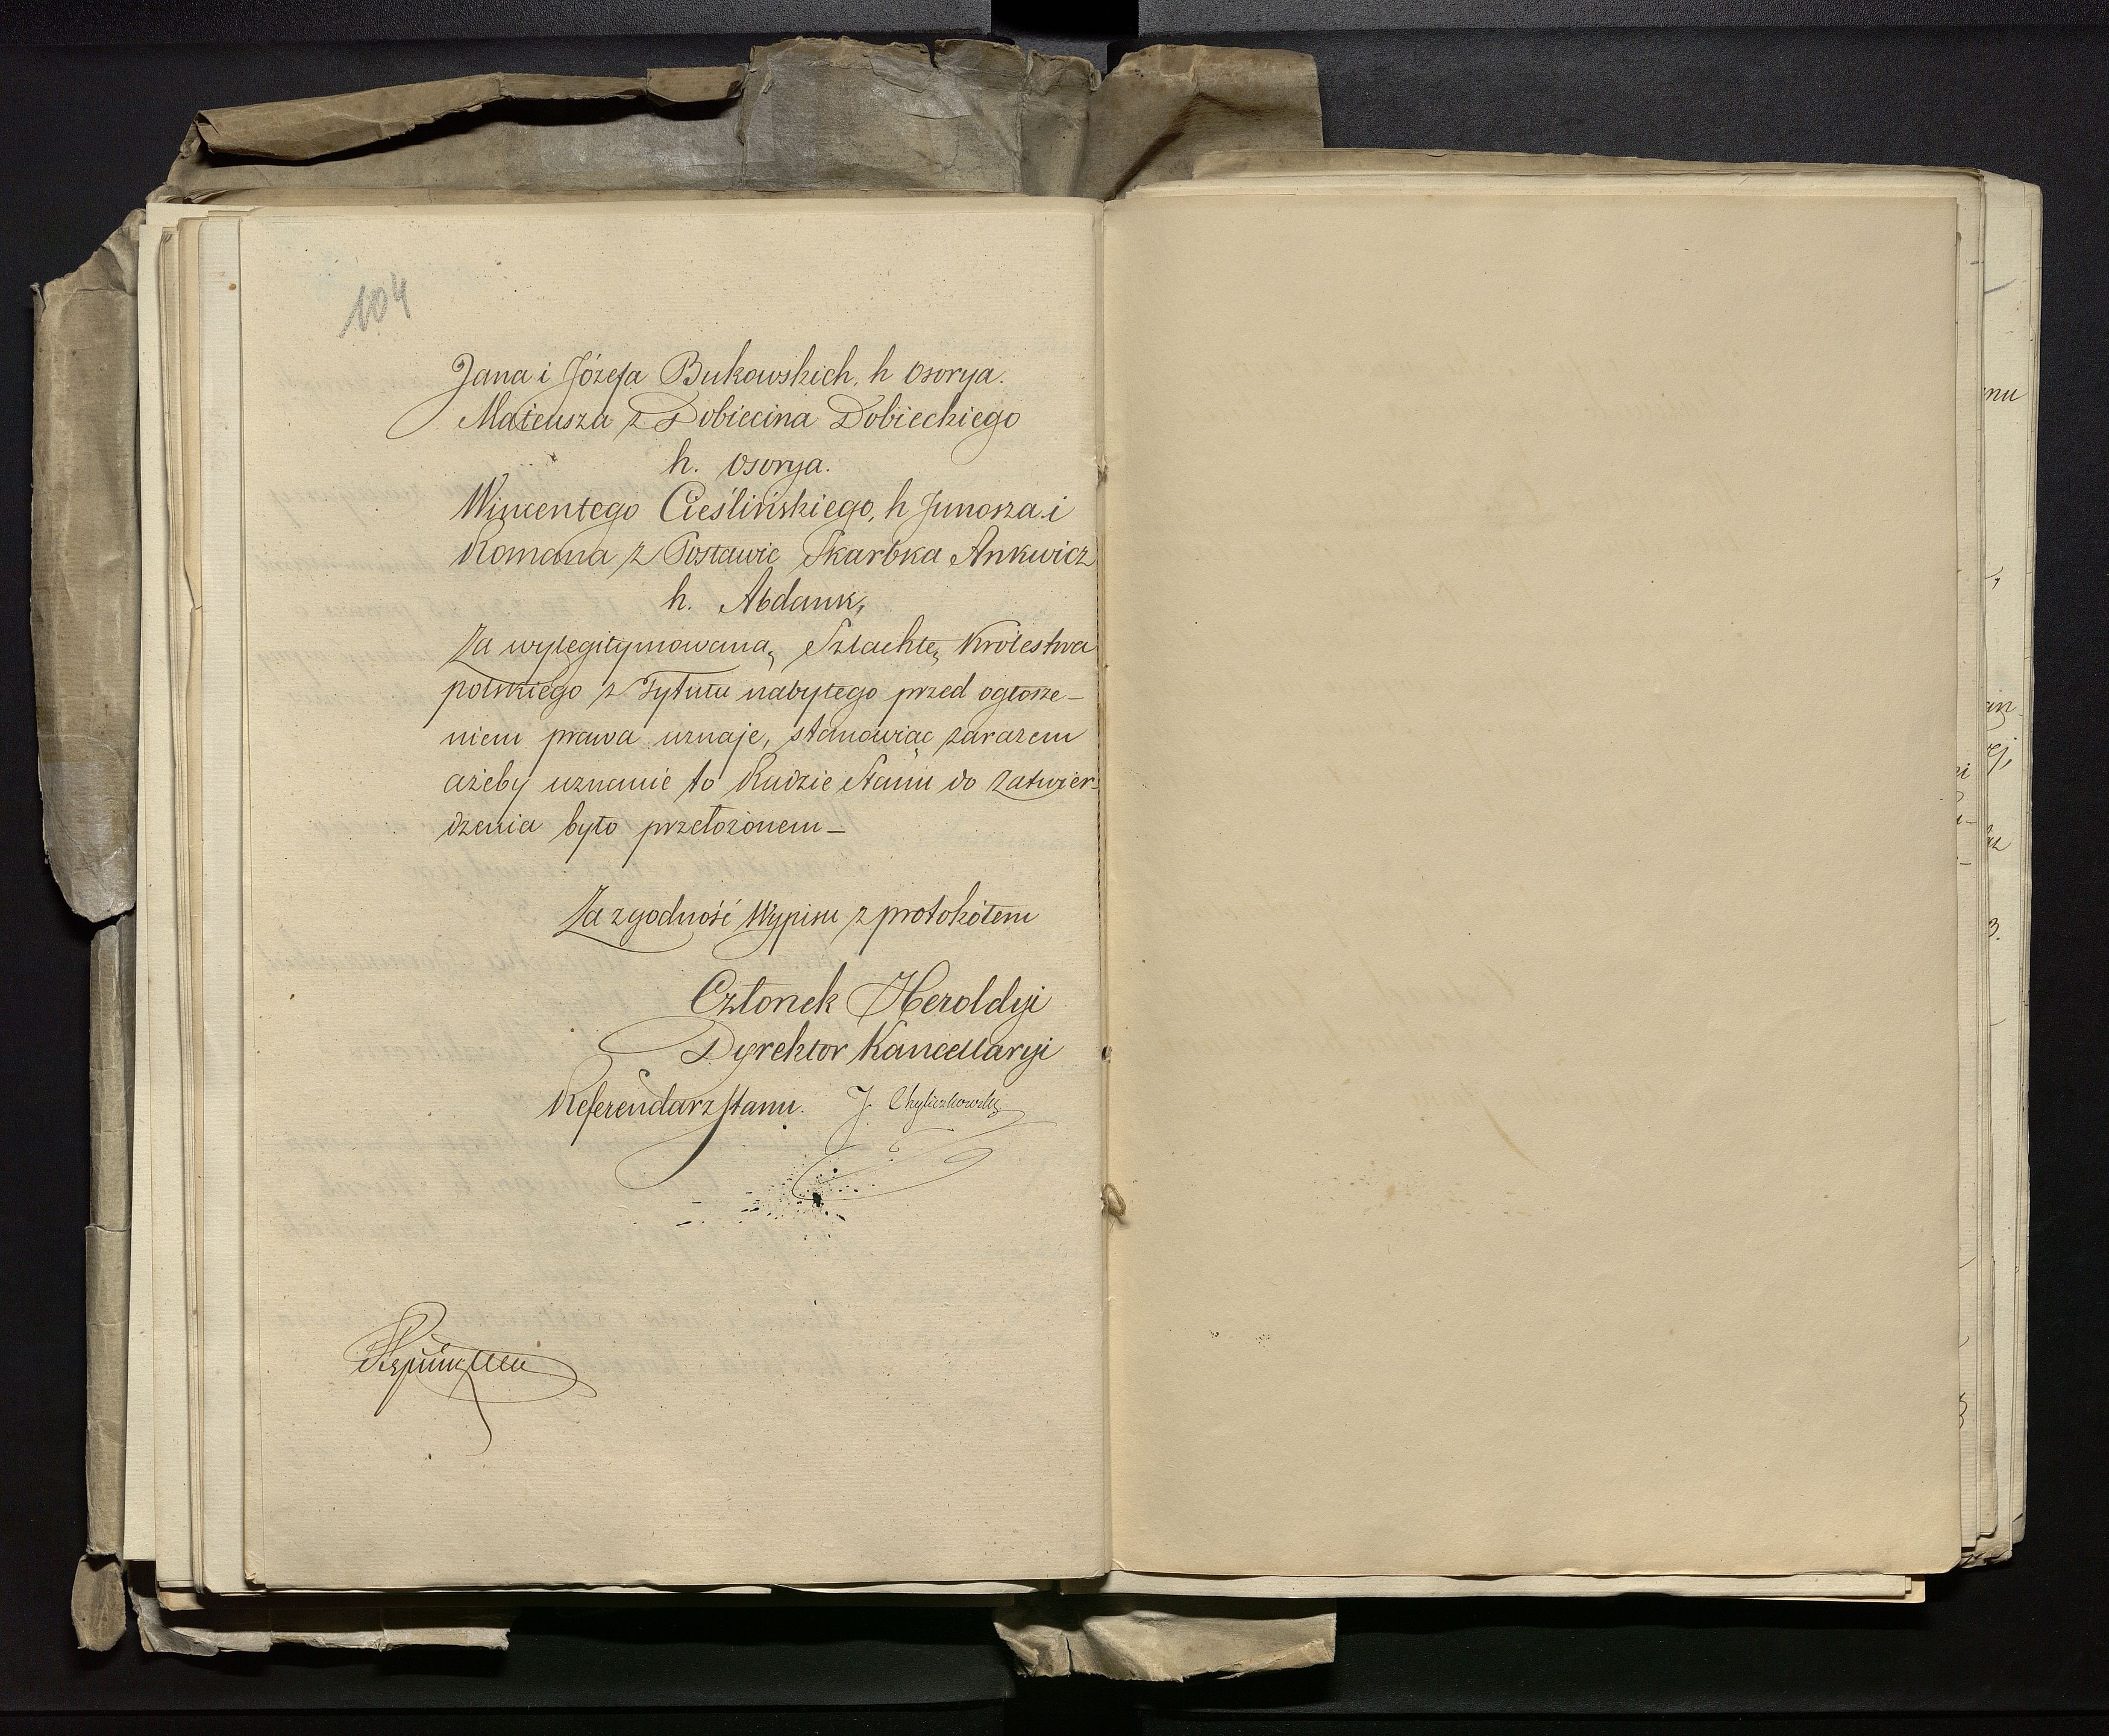 104
Jana i Józefa Bukowskich, h Osorya.
Mateusza z Dobiecina Dobieckiego
h. Osorya.
Wincentego Cieślińskiego, h Junosza i
Romana z Posławic Skarbka Ankwicz
h. Abdank,
Za wylegitymowaną Szlachtę Królestwa
polskiego z Tytułu nabytego przed ogłosze-
niem prawa uznaje, stanowiąc zarazem
ażeby uznanie to Radzie Stanu do zatwier-
dzenia było przełożonem—
Za zgodność Wypisu z protokółem
Członek Heroldyi
Dyrektor Kancellaryi
Referendarz Stanu. J. Chyliczkowski
nu
3.